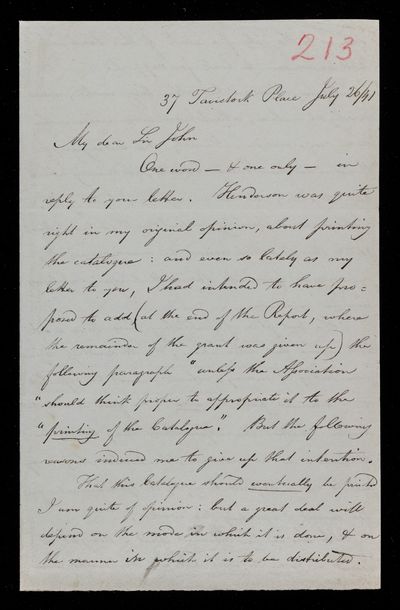 213
37 Tavistock Place July 26/41
My dear Sir John
One word — & one only — in
reply to your letter. Henderson was quite
right in my original opinion, about printing
the catalogue: and even so lately as my
letter to you, I had intended to have pro=
posed to add (at the end of the Report, where
the remainder of the grant was given up) the
following paragraph "unless the Association
"should think proper to appropriate it to the
"printing of the Catalogue." But the following
reasons induced me to give up that intention.
That this Catalogue should eventually be printed
I am quite of opinion: but a great deal will
depend on the mode in which it is done, & on
the manner in which it is to be distributed.